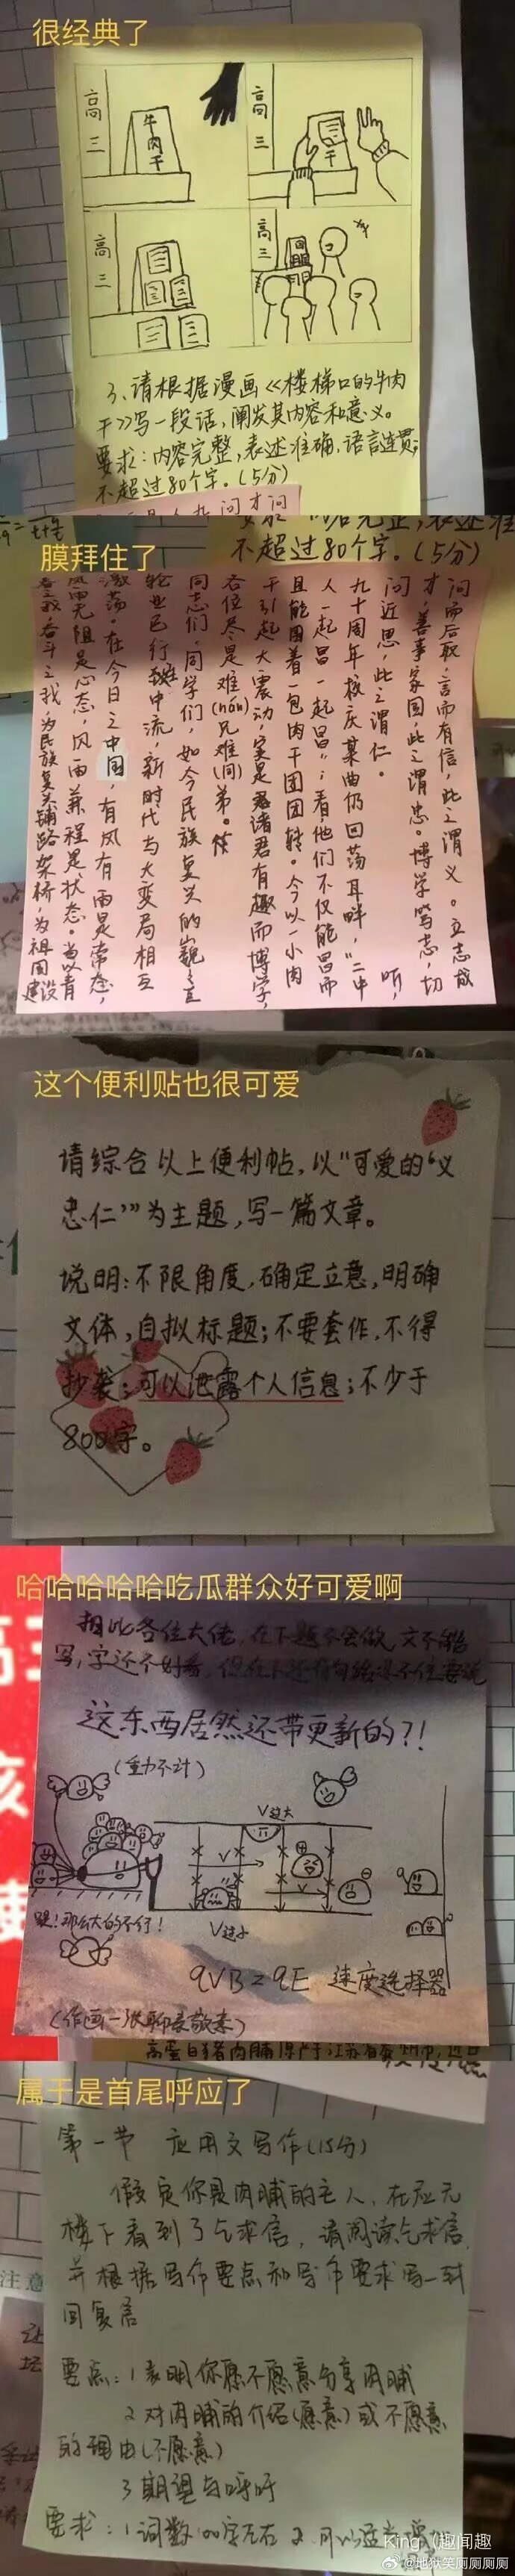 很经典了
高三
牛肉干
高三
干
高三
高三
3、请根据漫画《楼梯口的牛肉
干》写一段话,阐发其内容和意义。
要求:内容完整,表述准确,语言连贯;
不超过80个字。(5分)
膜拜住了
不超过80个字。(5分)
问而后取,言而有信,此之谓义。立志成
才,善事家国,此之谓忠。博学笃志,切
问近思,此之谓仁。
听,
九十周年校庆某曲仍回荡耳畔,“二中
人一起冒一起冒”;看他们不仅能冒而
且能围着一包肉干团团转。今以一小肉
干引起大震动,实是诸君有趣而博学,
各位尽是难(nán)兄难(同)弟。
同志们,同学们,如今民族复兴的巍巍
轮业已行驶中流,新时代与大变局相互
激荡。在今日之中国,有风有雨是常态,
风雨无阻是心态,风雨兼程是状态。当以青
春之我,奋斗之我,为民族复兴铺路架桥,为祖国建设
这个便利贴也很可爱
请综合以上便利帖,以“可爱的‘义
忠仁’”为主题,写一篇文章。
说明:不限角度,确定立意,明确
文体,自拟标题;不要套作,不得
抄袭;可以泄露个人信息;不少于
800字。
哈哈哈哈哈吃瓜群众好可爱啊
相比各位大佬,在下题不会做,文不能
写,字还不好看,但在下还有句话不得不要说
这东西居然还带更新的?!
(重力不计)
V过大
V
V
V过小
qVB=qE 速度选择器
(作画一张聊表敬意)
属于是首尾呼应了
第一节 应用文写作(15分)
假定你是肉脯的主人,在应元
楼下看到了乞求信,请阅读乞求信,
并根据写作要点和写作要求写一封
回复信
要点:1 表明你愿不愿意分享肉脯
2 对肉脯的介绍(愿意)或不愿意
的理由(不愿意)
3 期望与呼吁
要求:1 词数100字左右 2 可以适当增
注意
King (趣闻趣
@地狱笑厕厕厕厕